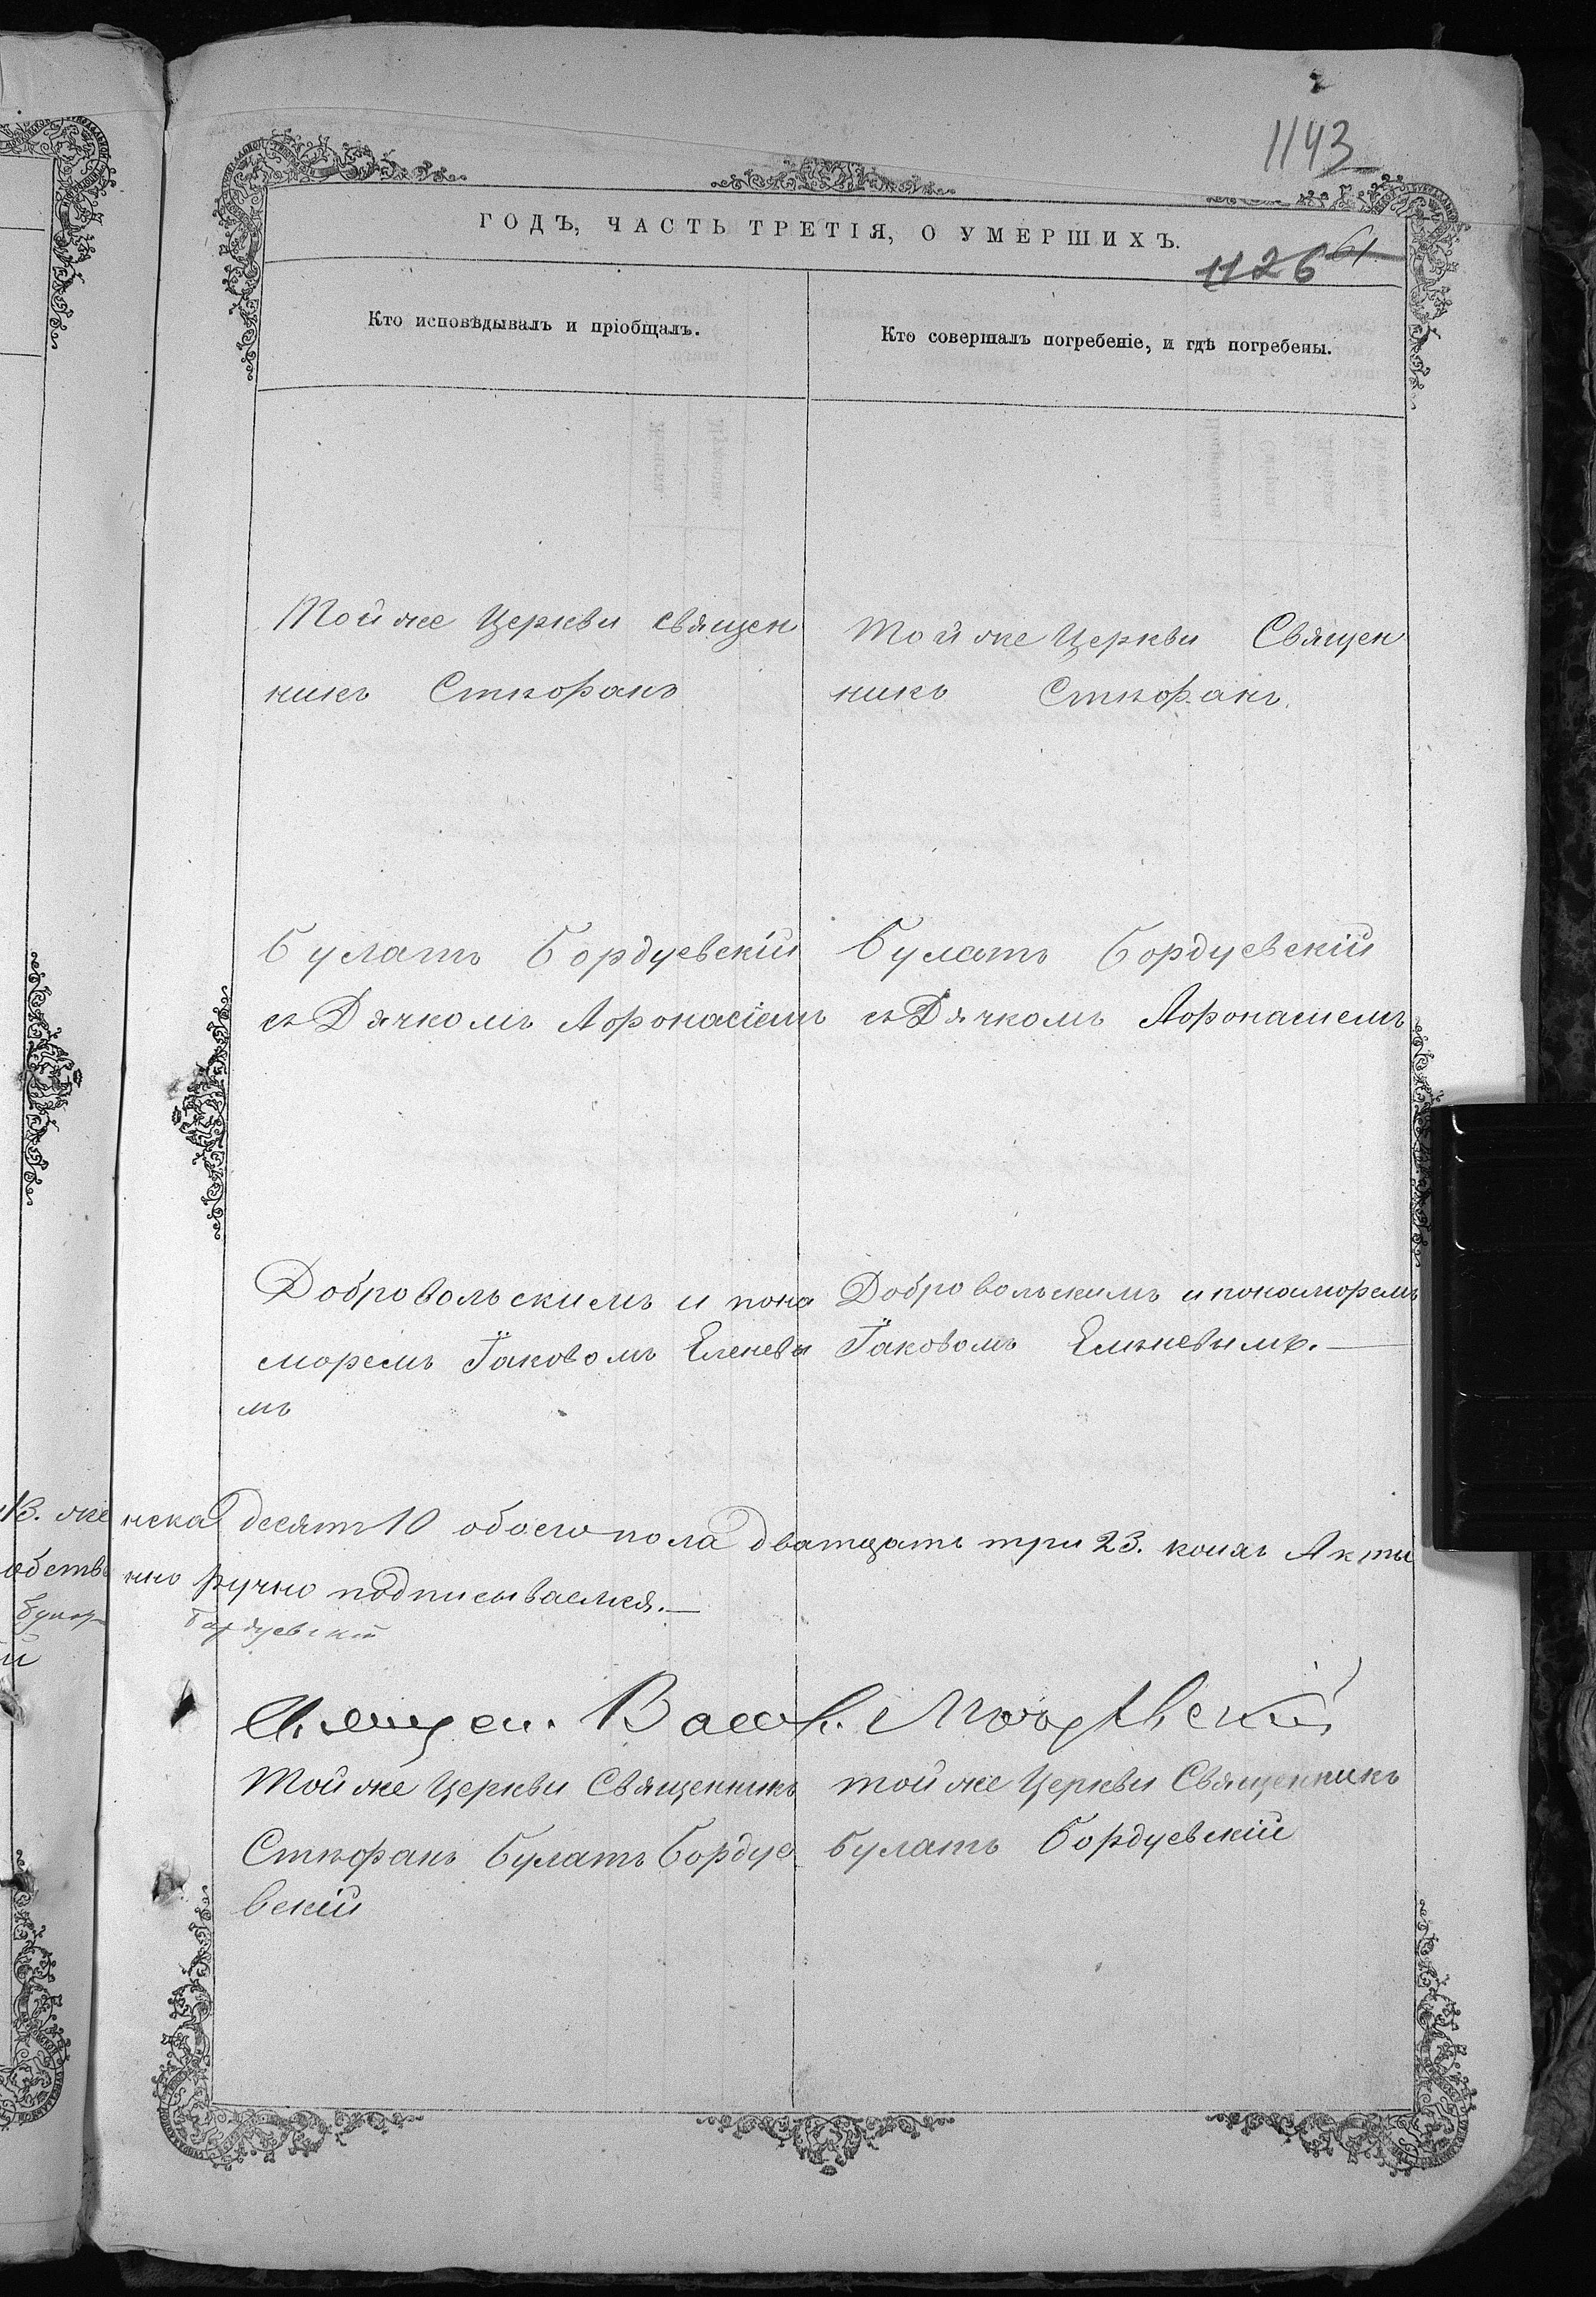 1143
ГОДЪ, ЧАСТЬ ТРЕТІЯ, О УМЕРШИХЪ.
1126 61
Кто исповѣдывалъ и пріобщалъ.
Кто совершалъ погребеніе, и гдѣ погребены.
Той же Церкви Священ
никъ Стѣфанъ
Той же Церкви Священ
никъ Стѣфанъ
Булатъ Бордуевскій
съ Дячкомъ Афонасіемъ
Булатъ Бордуевскій
съ Дячкомъ Афонасиемъ
Добровольскимъ и пона
моремъ Їаковомъ Еленевы
мъ
Добровольскимъ и понаморемъ
Їаковомъ Еленевымъ.—
13. же нска десят 10 обоего пола дватцать три 23. коихъ Акты
нно ручно подписываемся.—
Бордуевскій
Священ. Васил.
Той же Церкви Священникъ
Стѣфанъ Булатъ Бордуе
вскій
той же Церкви Священникъ
Булатъ Бордуевскій